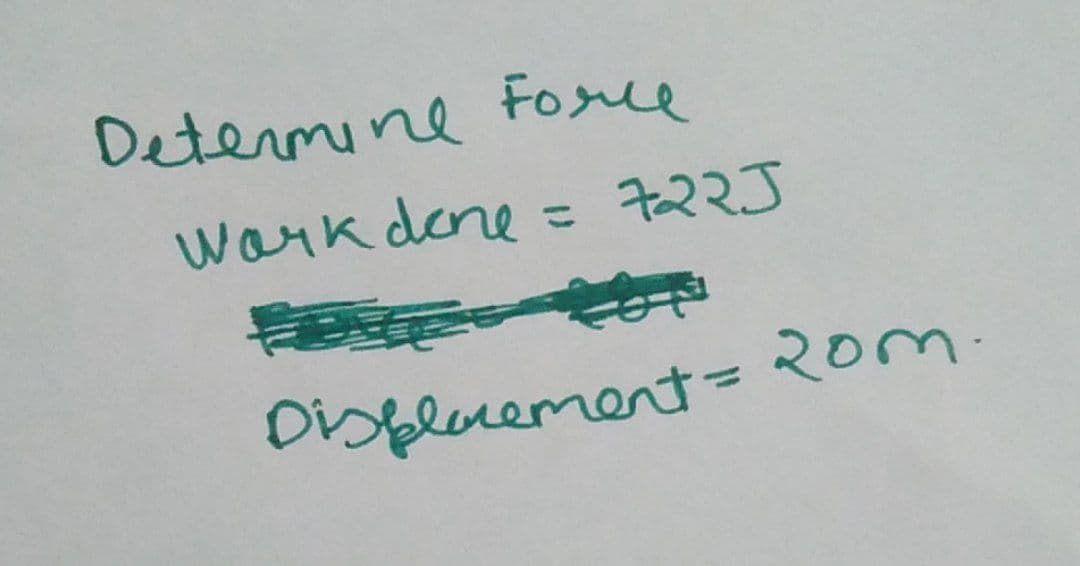 Determine Force
Work done = 722J
Displacement = 20m.